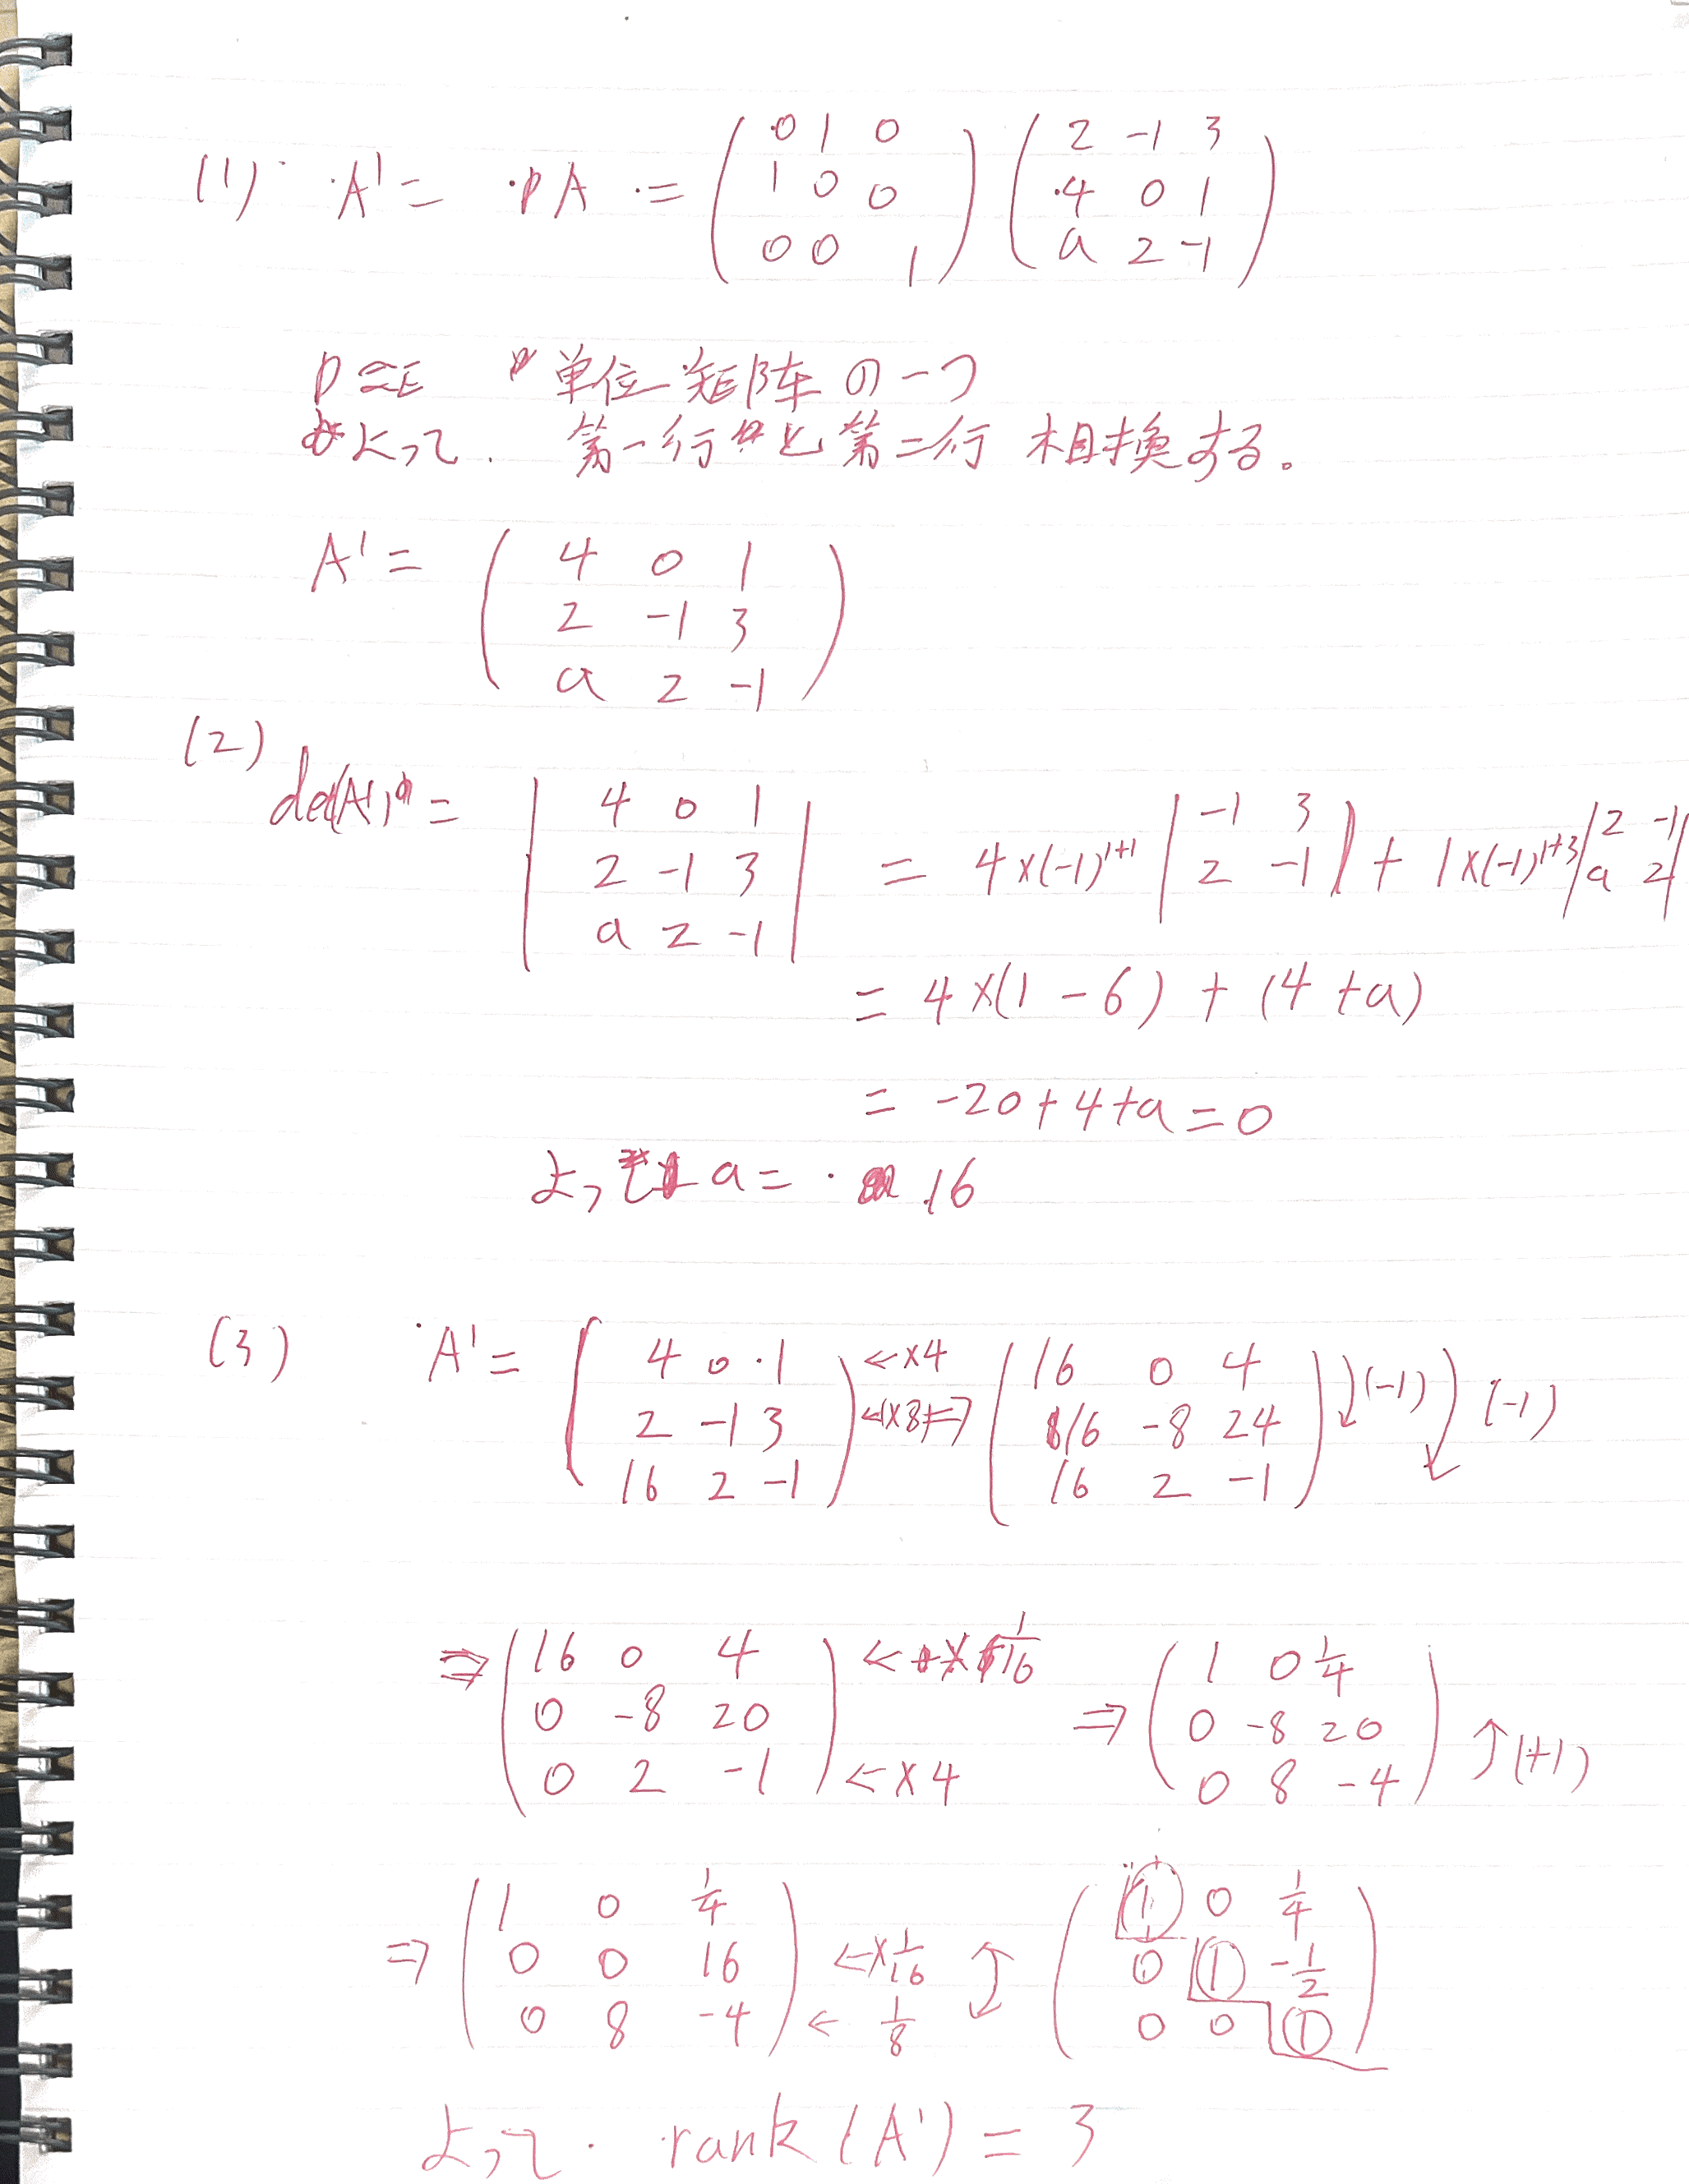 (1) A' = PA = ( 0 1 0 / 1 0 0 / 0 0 1 ) ( 2 -1 3 / 4 0 1 / a 2 -1 )
P≅E 単位矩阵の一つ
よって. 第一行と第二行 相換する。
A' = ( 4 0 1 / 2 -1 3 / a 2 -1 )
(2)
det(A') = | 4 0 1 / 2 -1 3 / a 2 -1 | = 4×(-1)^{1+1} | -1 3 / 2 -1 | + 1×(-1)^{1+3} | 2 -1 / a 2 |
= 4×(1-6) + (4+a)
= -20+4+a=0
よって a = 16
(3) A' = ( 4 0 1 / 2 -1 3 / 16 2 -1 ) ←×4 ←(×8) ⇒ ( 16 0 4 / 16 -8 24 / 16 2 -1 ) (-1) (-1)
⇒ ( 16 0 4 / 0 -8 20 / 0 2 -1 ) ←× 1/16 ←×4 ⇒ ( 1 0 1/4 / 0 -8 20 / 0 8 -4 ) ↑(+1)
⇒ ( 1 0 1/4 / 0 0 16 / 0 8 -4 ) ←× 1/16 ← 1/8 ↕ ( 1 0 1/4 / 0 1 -1/2 / 0 0 1 )
よって. rank(A') = 3